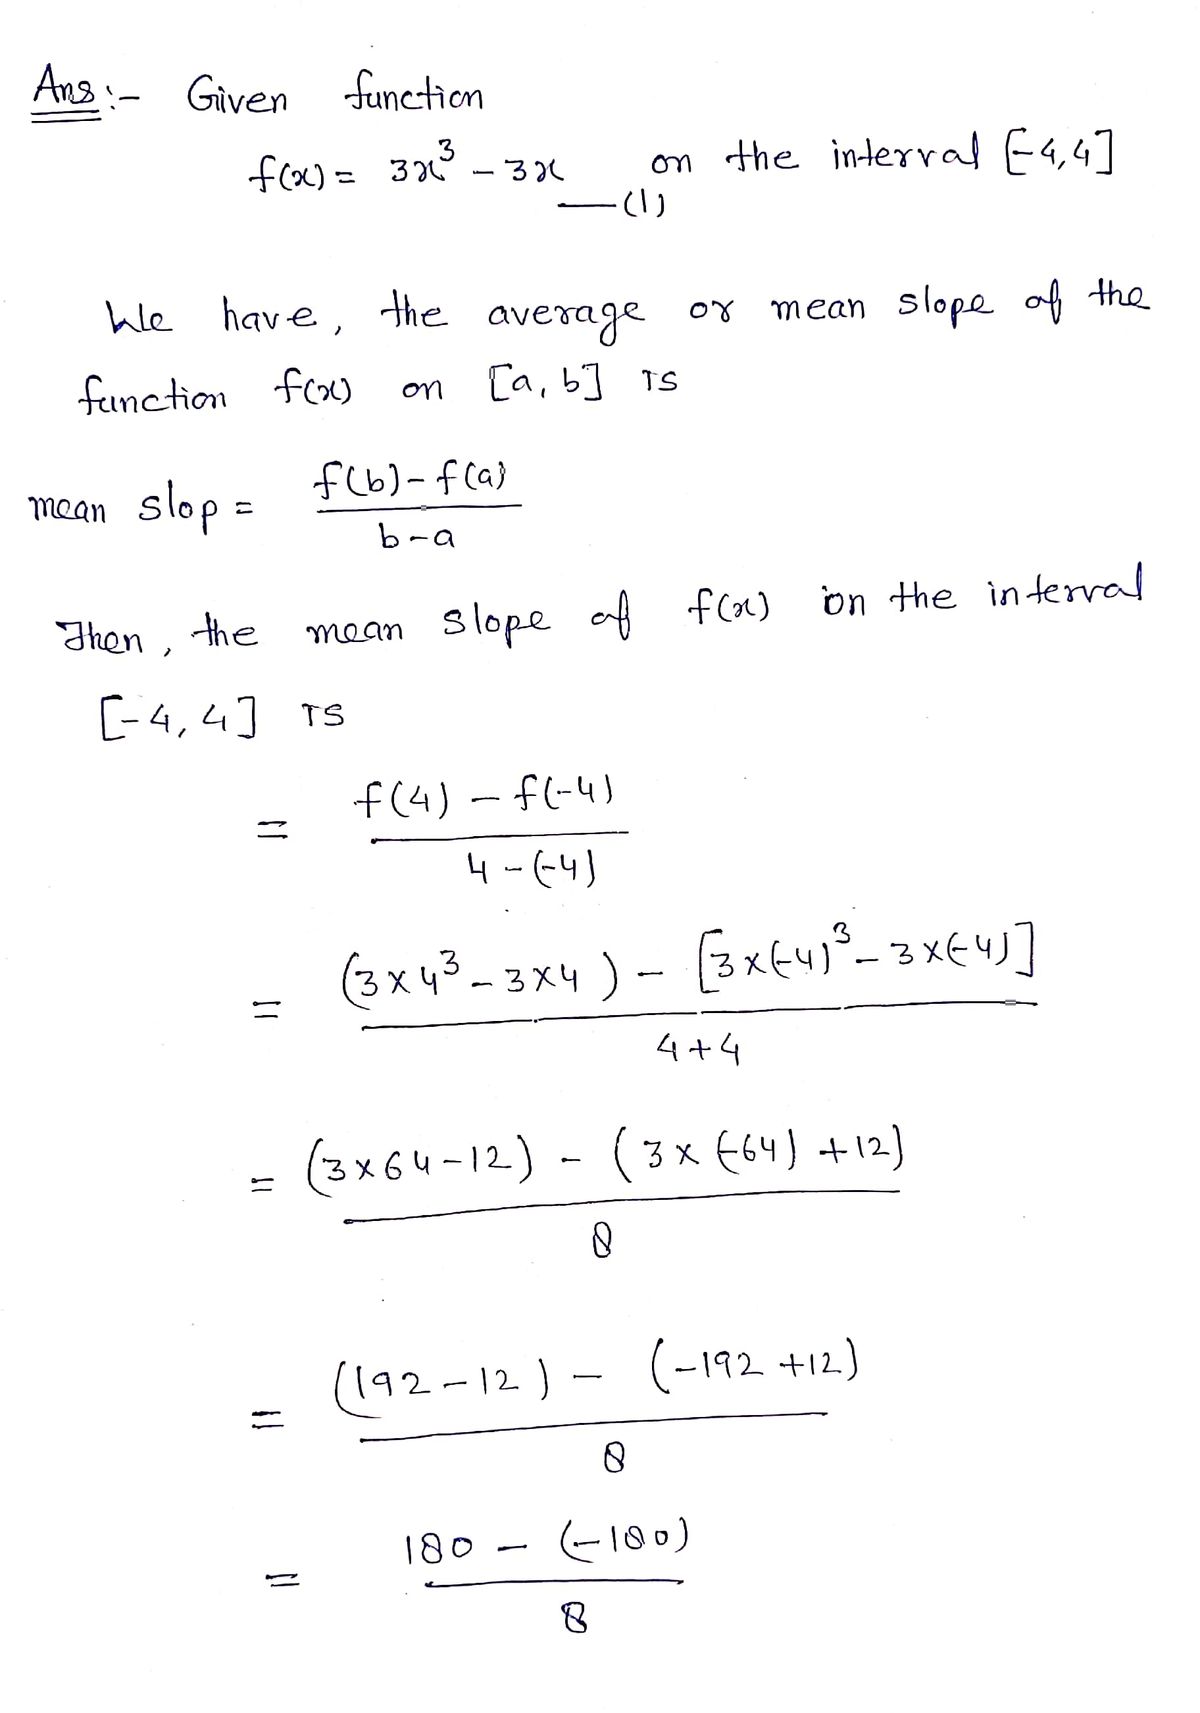 Ans:- Given function
f(x) = 3x³ - 3x on the interval [-4,4]
—(1)
We have, the average or mean slope of the
function f(x) on [a, b] is
mean slop = f(b) - f(a)
b-a
Then, the mean slope of f(x) on the interval
[-4, 4] is
= f(4) - f(-4)
4 - (-4)
= (3×4³ - 3×4) - [3×(-4)³ - 3×(-4)]
4+4
= (3×64-12) - (3×(-64) +12)
8
= (192-12) - (-192+12)
8
= 180 - (-180)
8